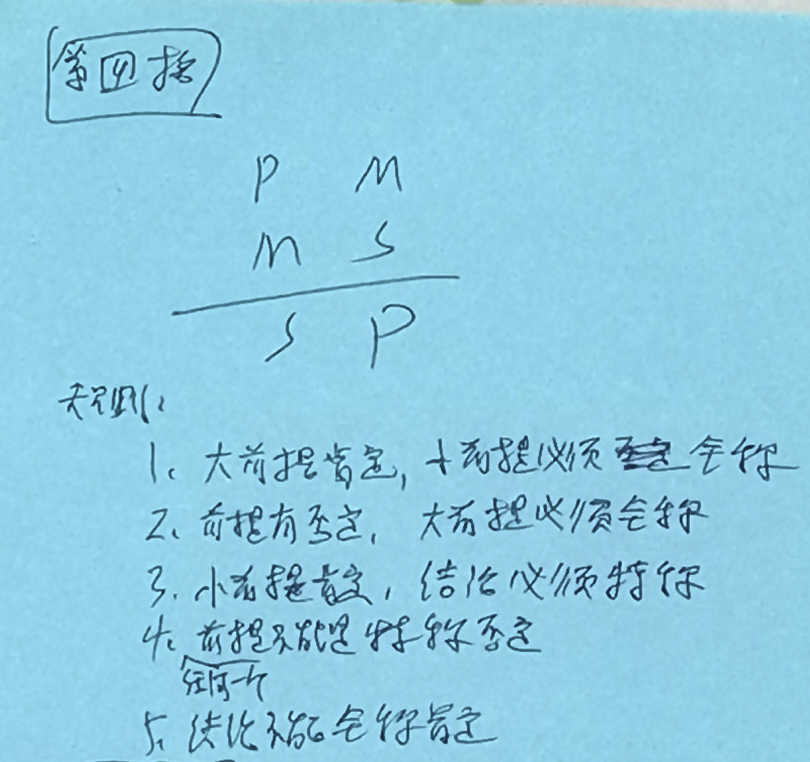 第四格
P M
M S
S P
规则:
1、大前提肯定,小前提必须全称
2、前提有否定,大前提必须全称
3、小前提肯定,结论必须特称
4、前提不能是特称否定
任何一个
5、结论不能全称肯定